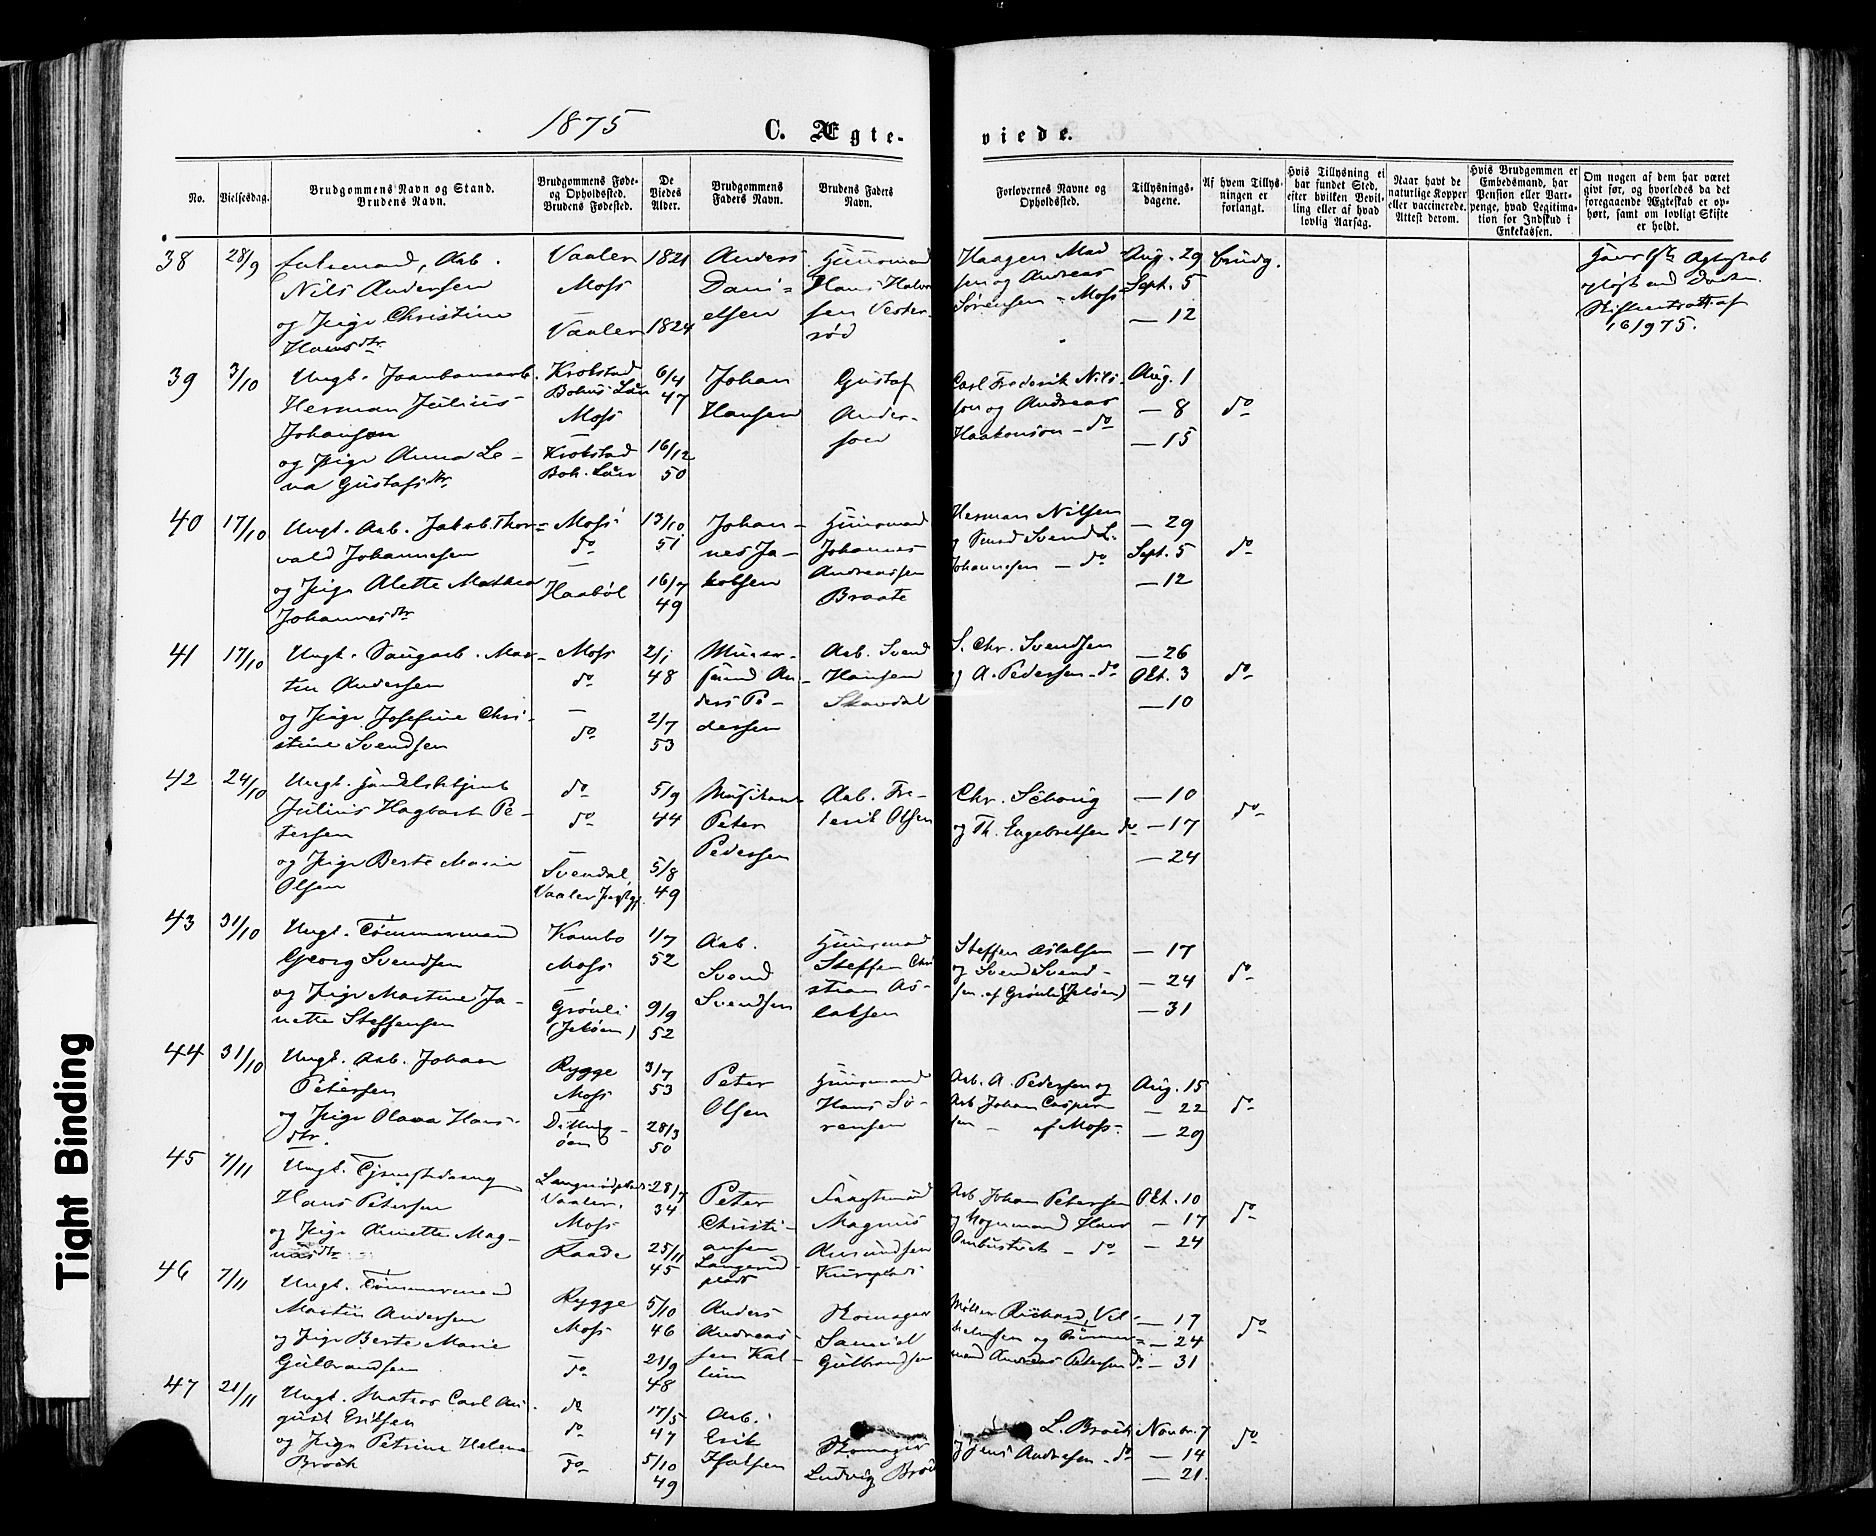 1875
C. Ægte-
viede.
No.
Vielsesdag.
Brudgommens Navn og Stand.
Brudens Navn.
Brudgommens Føde-
og Opholdssted.
Brudens Fødested.
De
Viedes
Alder.
Brudgommens
Faders Navn.
Brudens Faders
Navn.
Forlovernes Navne og
Opholdssted.
Tillysnings-
dagene.
Af hvem Tillys-
ningen er
forlangt.
Hvis Tillysning ei
har fundet Sted,
efter hvilken Bevil-
ling eller af hvad
lovlig Aarsag.
Naar havt de
naturlige Kopper
eller vaccinerede.
Attest derom.
Hvis Brudgommen er
Embedsmand, har
Pension eller Vart-
penge, hvad Legitima-
tion for Indskud i
Enkekassen.
Om nogen af dem har været
givt før, og hvorledes da det
foregaaende Ægteskab er op-
hørt, samt om lovligt Skifte
er holdt.
38
28/9
Enkemand, Arb.
Nils Andersen
og Pige Christine
Hansdtr.
Vaaler
Moss
Vaaler
1821
1824
Anders
Dani-
elsen
Huusmand
Hans Halvor
sen Vester
rød
Haagen Mad
sen og Andreas
Sørensen - Moss
Aug. 29
Sept. 5
— 12
brudg.
Hans 1ste Ægteskab
opløst ved Døden
Skifteattest af
16/9 75.
39
3/10
Ungk. Jernbanearb.
Herman Julius
Johansen
og Pige Anna Le-
na Gustafsdtr.
Krokstad
Bohus Län
Moss
Krokstad
Boh. Län
6/4
47
16/12
50
Johan
Hansen
Gustaf
Ander-
sen
Carl Frederik Nils-
sen og Andreas
Haakonson - do
Aug. 1
— 8
— 15
do
40
17/10
Ungk. Arb. Jakob Thor-
vald Johannesen
og Pige Alette Mathea
Johannesdtr
Moss
do
Haabøl
13/10
51
16/7
49
Johan-
nes Ja-
kobsen
Huusmand
Johannes
Andreassen
Braate
Herman Nilsen
og Smed Svend L.
Johannesen - do
— 29
Sept. 5
— 12
do
41
17/10
Ungk. Saugarb. Mar-
tin Andersen
og Pige Josefine Chri-
stine Svendsen
Moss
do
do
2/1
48
2/7
53
Murer-
svend An-
ders Pe-
dersen
Arb. Svend
Hansen
Skavdal
S. Chr. Svendsen
og A. Pedersen - do
— 26
Okt. 3
— 10
do
42
24/10
Ungk. Handelsbetjent
Julius Hagbart Pe-
tersen
og Pige Berte Marie
Olsen
do
do
Svendal,
5/9
44
5/8
49
Musikant
Peter
Pedersen
Arb. Fre-
derik Olsen
Chr. Schou
og Th. Engebretsen do
— 10
— 17
— 24
do
43
31/10
Ungk. Tømmermand
Georg Svendsen
og Pige Martine Ja-
nette Steffensen
Kambo
Moss
Grønli
(Jeløen)
1/7
52
9/9
52
Arb.
Svend
Svendsen
Huusmand
Steffen Chri
stian As-
laksen
Steffen Aslaksen
og Svend Svend-
sen af Grønli (Jeløen)
— 17
— 24
— 31
do
44
31/10
Ungk. Arb. Johan
Petersen
og Pige Olava Hans-
dtr.
Rygge
Moss
3/7
53
28/3
50
Peter
Olsen
Huusmand
Hans Sø-
rensen
Arb. A. Pedersen og
Arb Johan Casper
sen - af Moss.
Aug. 15
— 22
— 29
do
45
7/11
Ungk.
Hans Petersen
og Pige Annette Mag-
nusdtr
Vaaler.
Moss
Raade
28/7
34
25/11
45
Peter
Christi-
ansen
Langerød
plads
Magnus
Amundsen
Arb. Johan Petersen
Okt. 10
— 17
— 24
do
46
7/11
Ungk. Tømmermand
Martin Andersen
og Pige Berte Marie
Gulbrandsen
Rygge
Moss
do
5/10
46
21/9
48
Anders
Andreas-
sen Kal-
lum
Skomager
Samuel
Gulbrandsen
Møller Richard Vil-
helmsen og Tømmer-
mand Andreas Petersen do
— 17
— 24
— 31
do
47
21/11
Ungk. Matros Carl Au-
gust Eriksen
og Pige Petrine Helene
Broch
do
do
do
17/5
47
5/10
49
Arb.
Erik
Skomager
Ludvig Broch
L. Broch
og Jens Andresen - do
Novbr. 7
— 14
— 21.
do
Tight Binding